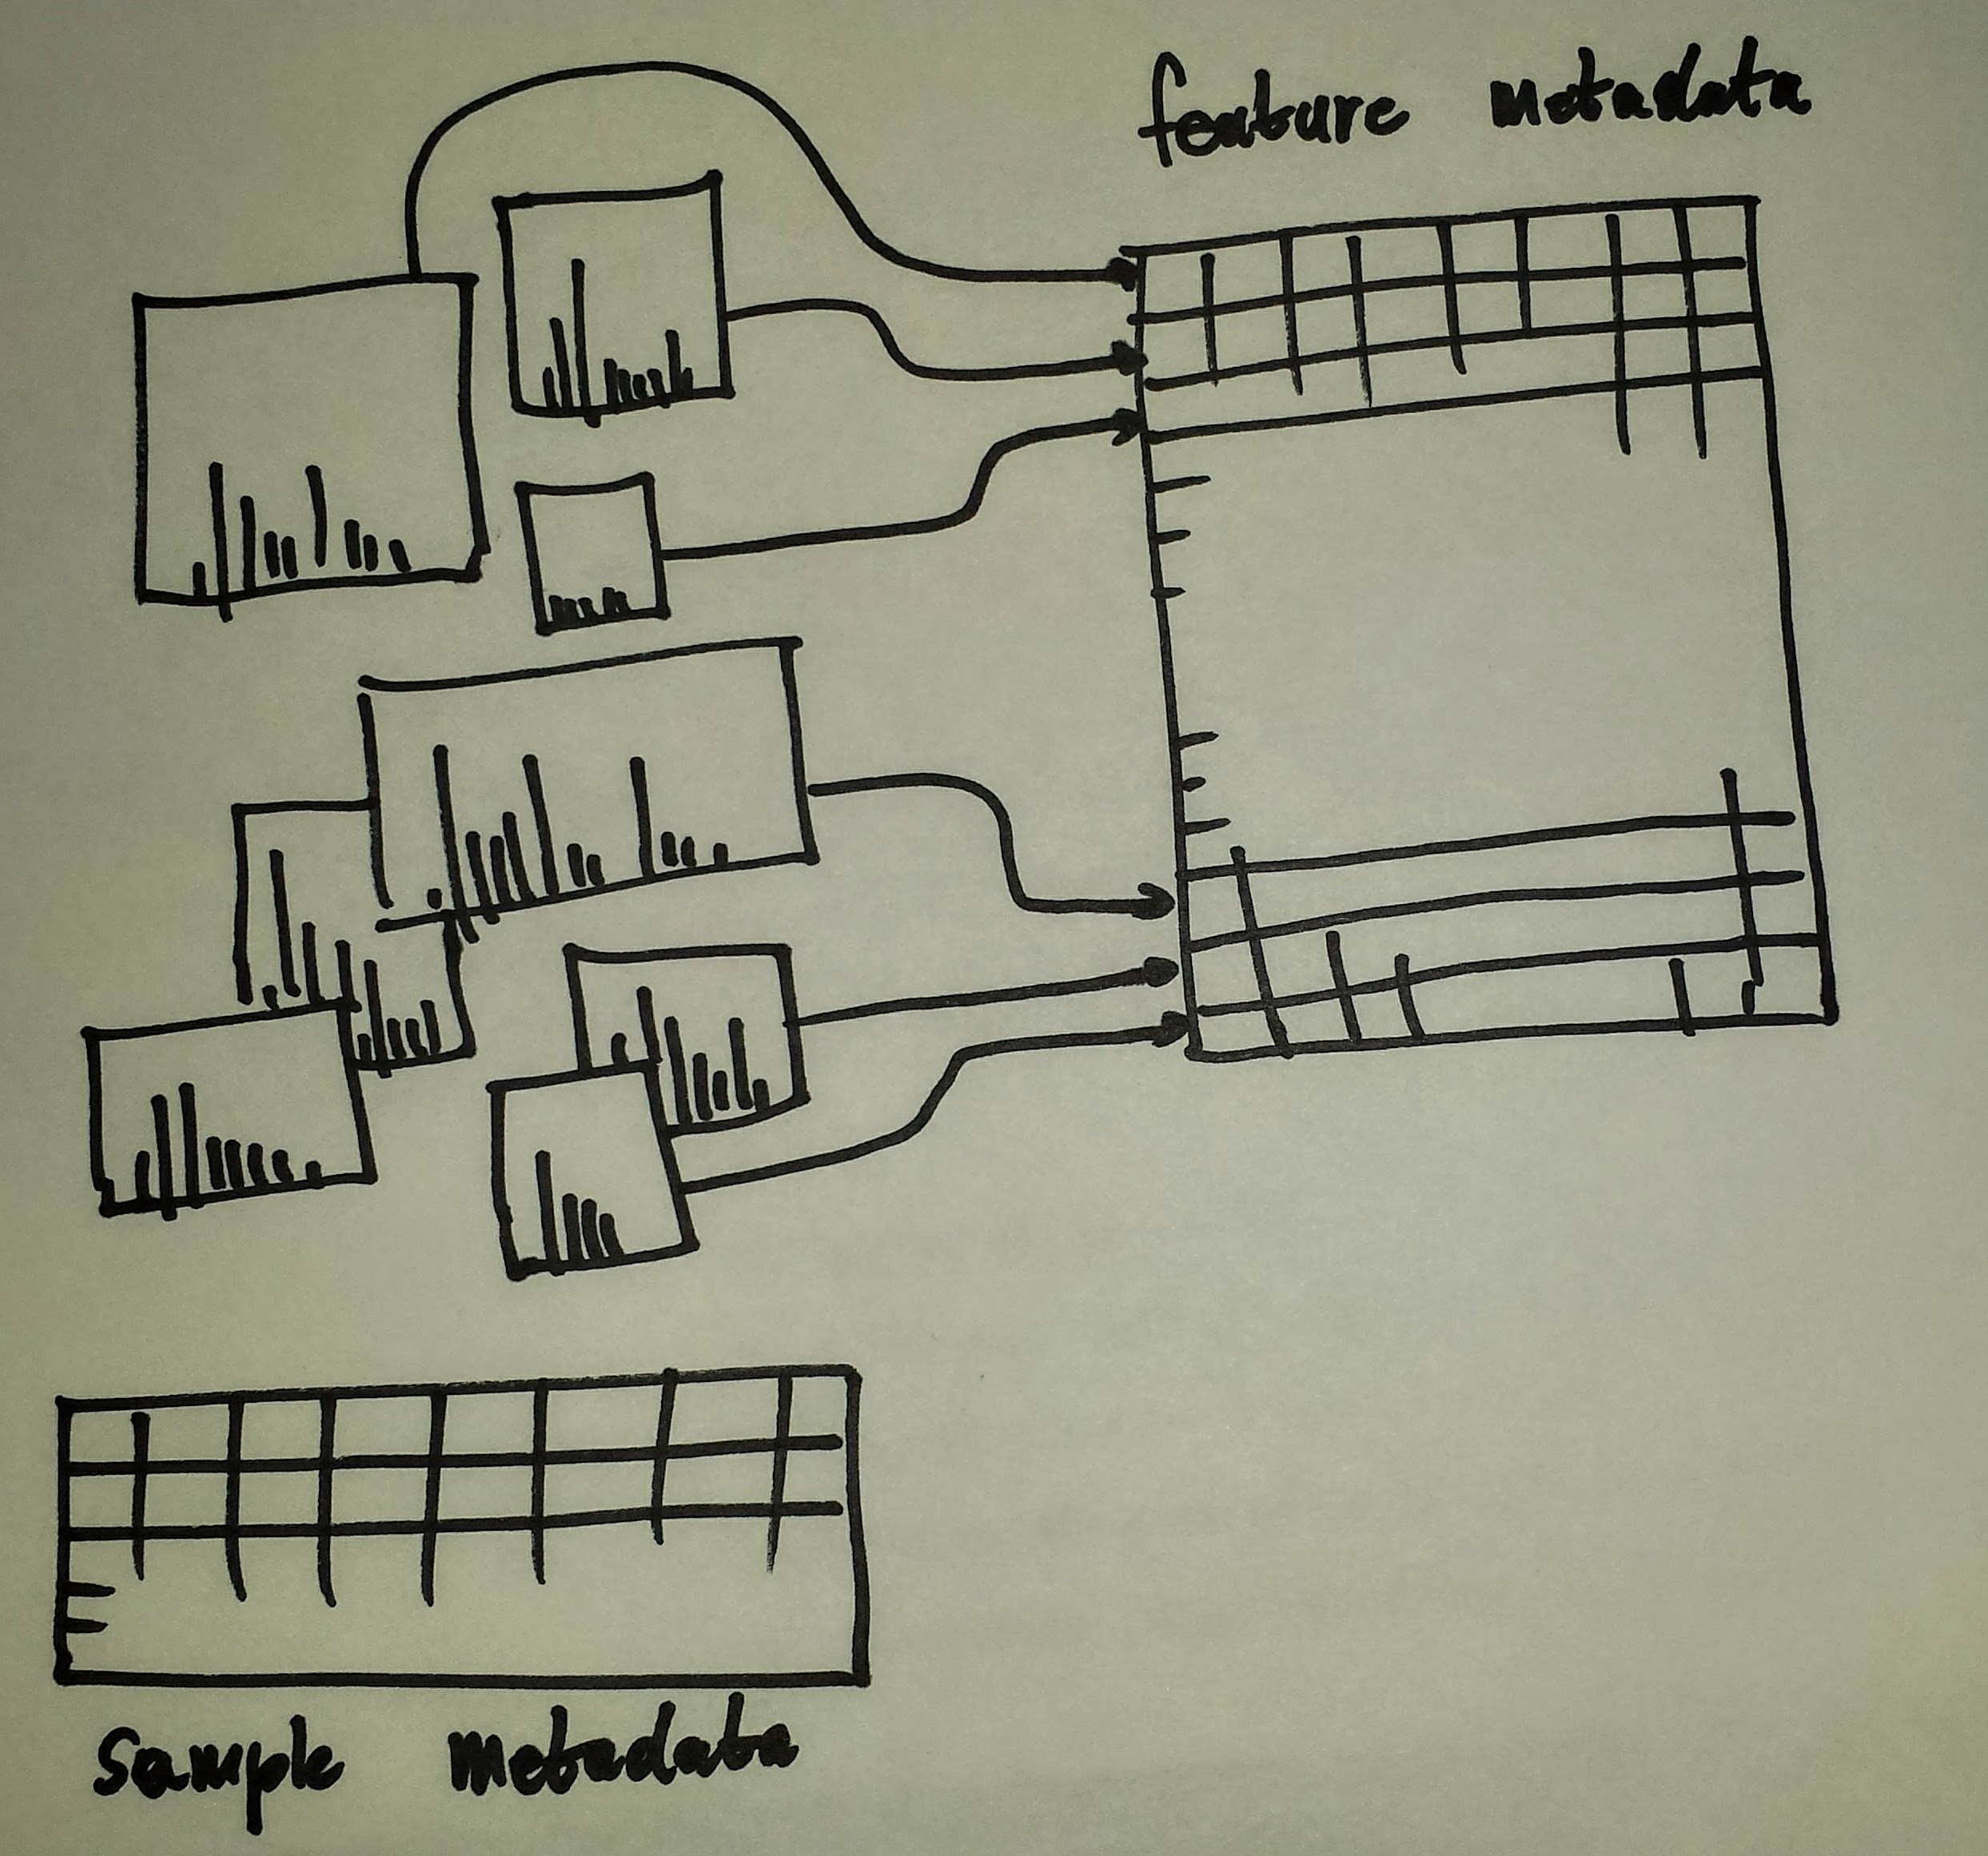 feature metadata
sample metadata